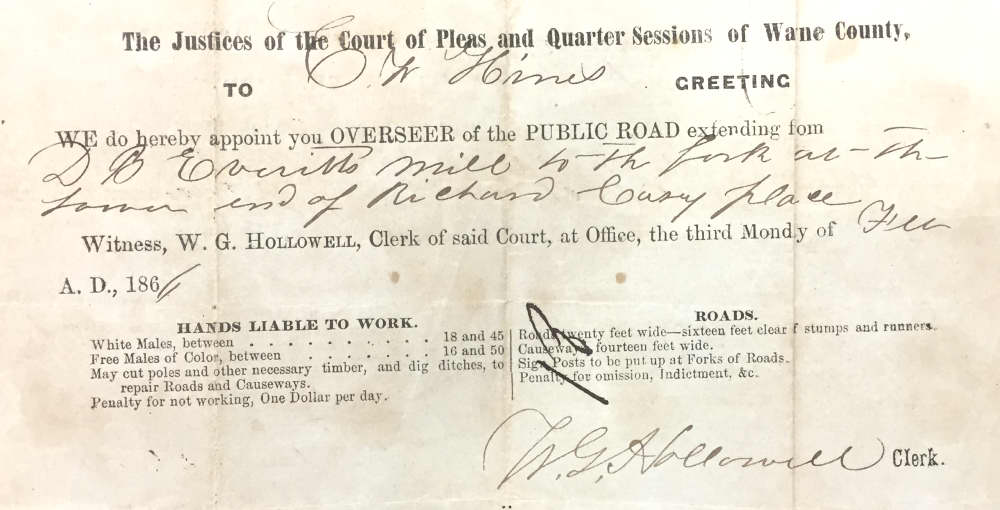 The Justices of the Court of Pleas and Quarter Sessions of Wane County,
TO E W Hines GREETING
WE do hereby appoint you OVERSEER of the PUBLIC ROAD extending fom
D B Everitts mill to th fork at th
end of Richard Casey place
Witness, W. G. HOLLOWELL, Clerk of said Court, at Office, the third Mondy of Feb
A. D., 1866
HANDS LIABLE TO WORK.
White Males, between . . . . . . . . . 18 and 45
Free Males of Color, between . . . . . . . 16 and 50
May cut poles and other necessary timber, and dig ditches, to
repair Roads and Causeways.
Penalty for not working, One Dollar per day.
ROADS.
Roads twenty feet wide—sixteen feet clear f stumps and runners.
Causeways fourteen feet wide.
Sign Posts to be put up at Forks of Roads.
Penalty for omission, Indictment, &c.
W. G. Hollowell Clerk.